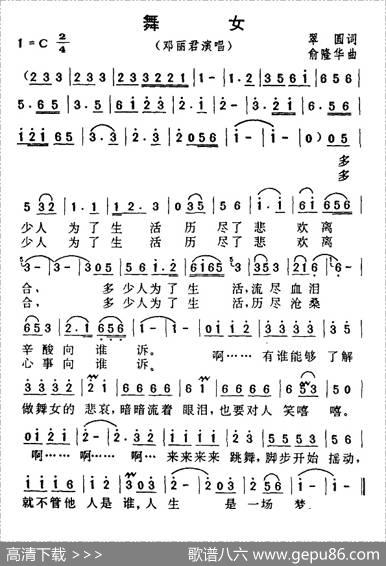 舞 女
1=C 2/4
（邓丽君演唱）
翠 圆词
俞隆华曲
(2 3 3 | 2 3 3 | 2 3 3 2 2 1 | 1 - | 1 . 3 | 3 5 6 1 | 6 1
5 . 6 5 | 5 . 3 | 6 1 2 3 | 2 - | 2 . 3 | 2 1 | 6 5 6
1 2 1 6 5 | 3 - | 3 . 2 | 2 0 5 6 | 1 - | 1 0 ) 0 5
多
多
5 3 2 | 1 . 1 | 1 2 . 3 | 0 5 3 5 | 2 5 6 | 1 . 1 | 6 1 6 5 6
少人 为了 生 活 历 尽了 悲 欢离
少人 为了 生 活 历 尽了 悲 欢离
3 - | 3 - | 3 0 5 | 5 6 1 . 2 | 6 1 6 5 | 3 5 3 | 2 1 6 | 6 -
合， 多 少人为了生 活，流尽血泪
合， 多 少人为了生 活，历尽沧桑
6 5 3 | 2 . 1 | 5 6 5 6 | 1 - | 1 - | 0 1 2 | 3 3 3 3 | 3 5
辛酸向 谁 诉。 啊…… 有谁能够 了解
心事向 谁 诉。
3 . 2 3 2 | 2 1 | 6 6 6 6 | 1 6 | 6 6 6 6 | 6 5 3 | 0 5 .
做舞女的 悲哀，暗暗流着 眼泪，也要对人 笑嘻 嘻。
0 1 2 1 | 2 - | 0 2 3 2 | 3 - | 3 3 3 3 | 5 3 | 5 5 5 5 | 5 6
啊…… 啊…… 啊…… 来来来来 跳舞，脚步开始 摇动，
1 1 1 6 | 1 2 | 3 0 3 | 2 - | 2 0 3 | 2 5 6 | 1 - | 1 - ‖
就不管他 人是 谁，人 生 是 一场 梦。
高清下载 >>>
歌谱八六 www.gepu86.com